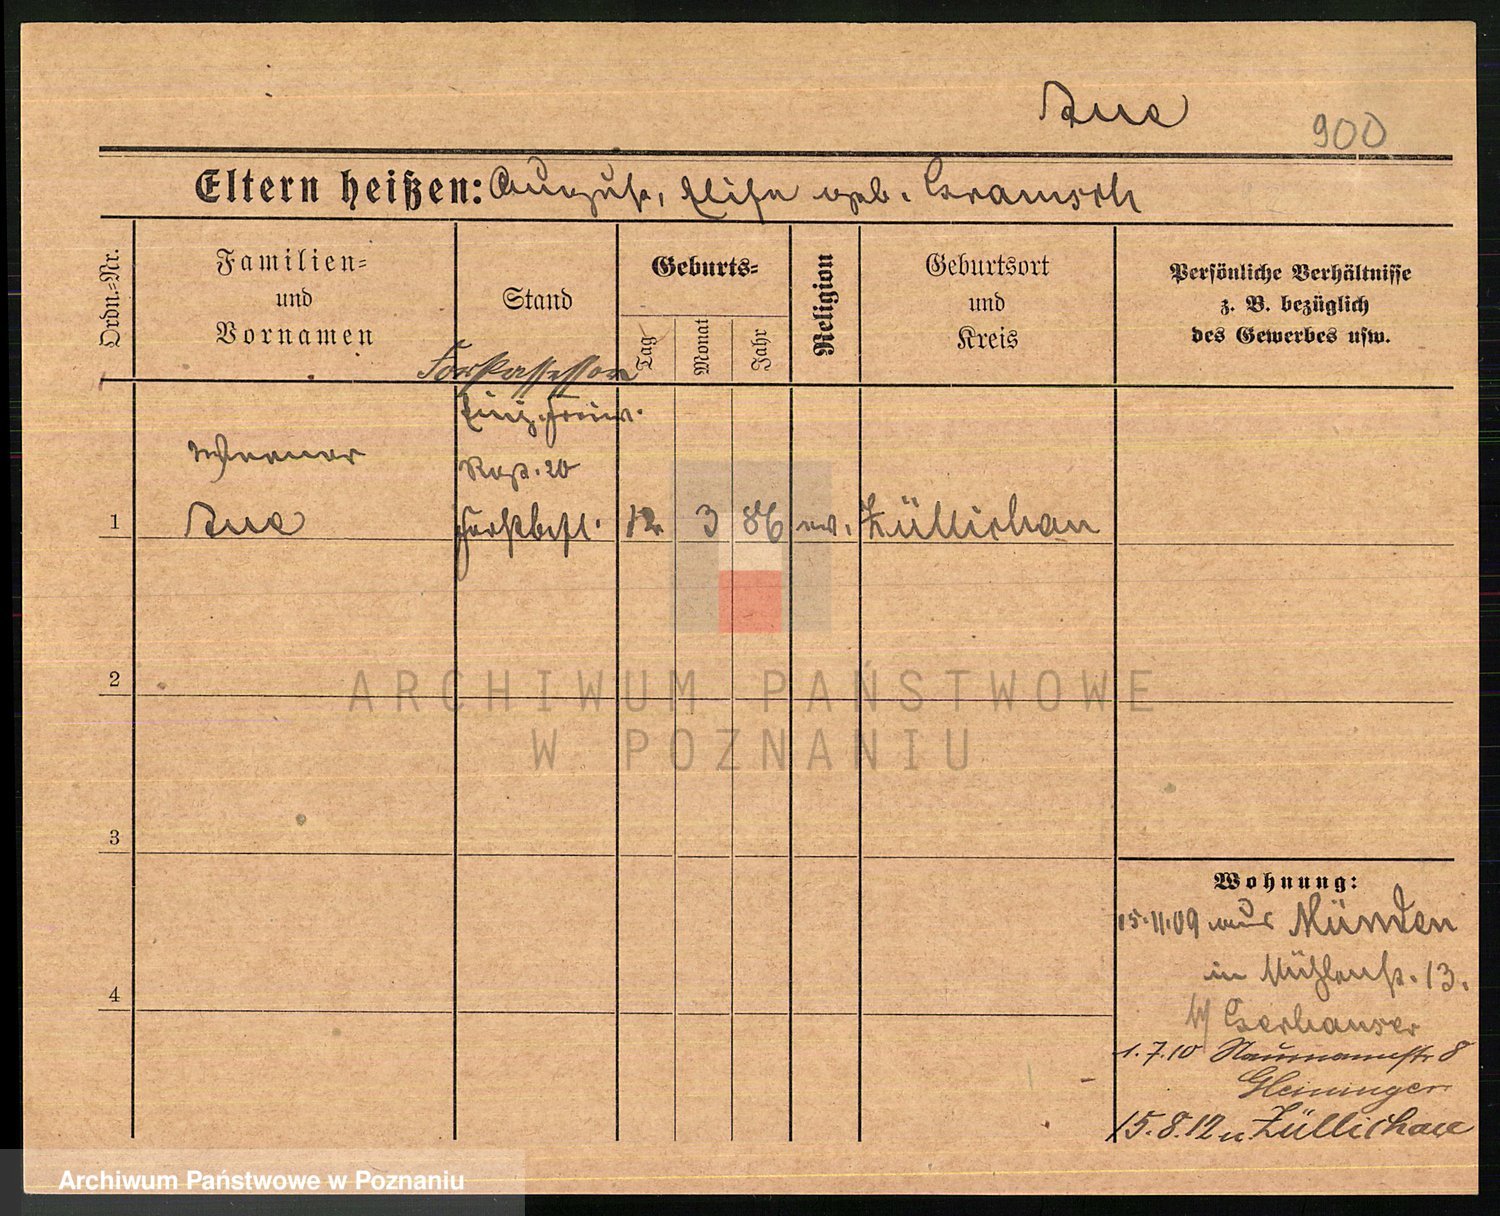 Aue
900
Eltern heißen: August, Elise geb. Gramsch
Ordn.-Nr.
Familien-
und
Vornamen
Stand
Geburts-
Tag
Monat
Jahr
Religion
Geburtsort
und
Kreis
Persönliche Verhältnisse
z. B. bezüglich
des Gewerbes usw.
Forstassessor
Einj. Freiw.
Werner
Rgt. 20
1 Aue Forstbefl. 12 3 86 ev. Züllichau
2
3
4
Wohnung:
15.11.09 aus Münden
in Mühlenst. 13.
b/
1.7.10 Naumannstr 8
Gleininger
15.8.12 n Züllichau
ARCHIWUM PAŃSTWOWE
W POZNANIU
Archiwum Państwowe w Poznaniu